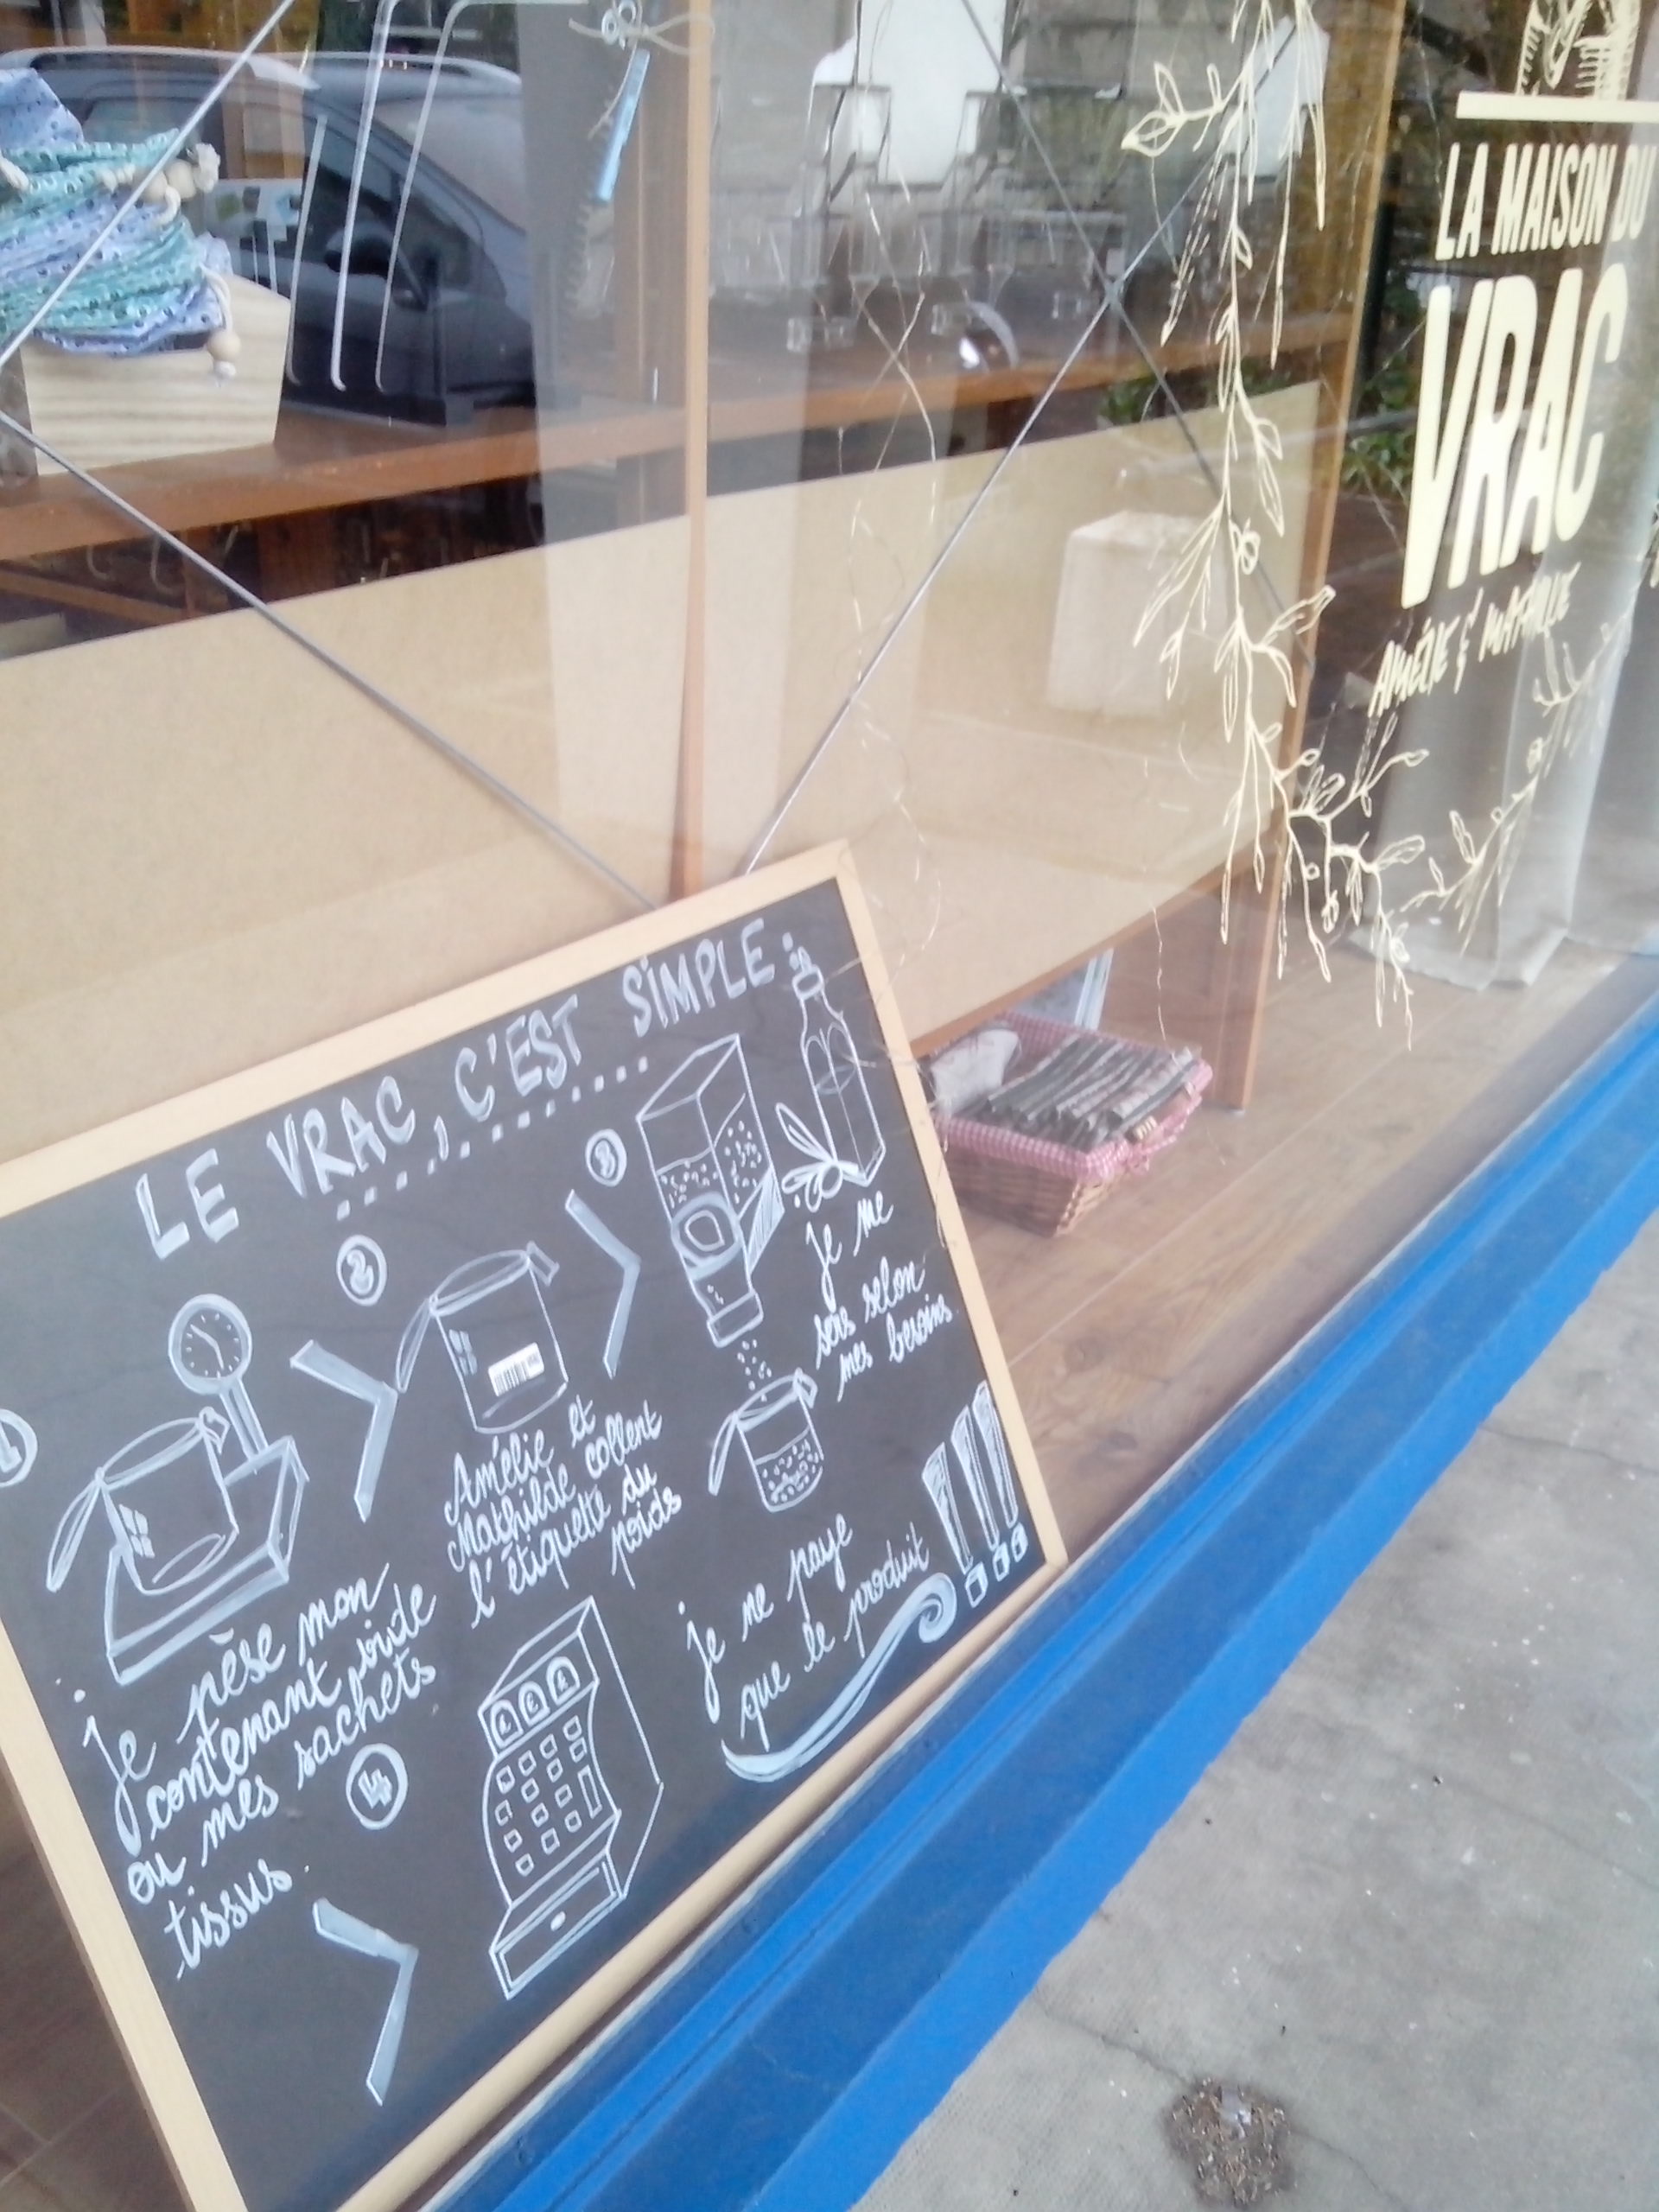 LA MAISON DU
VRAC
AMÉLIE & MATHILDE
LE VRAC, C'EST SIMPLE
1
je pèse mon
contenant vide
ou mes sachets
tissus.
2
Amélie et
Mathilde collent
l'étiquette du
poids
3
je me
sers selon
mes besoins.
4
je ne paye
que le produit
!!!